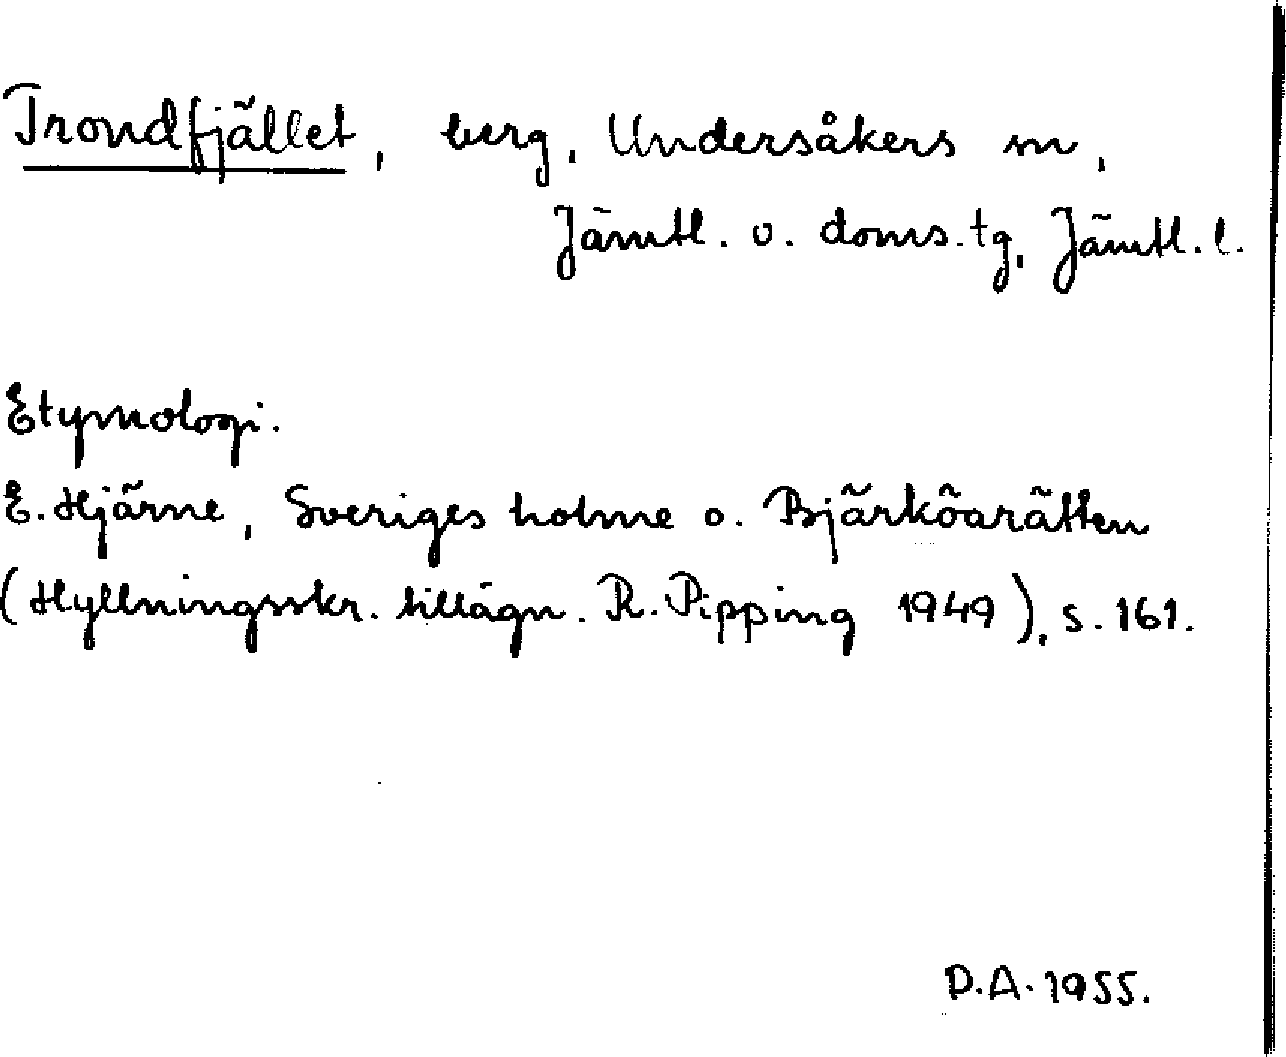 Trondfjället, berg, Undersåkers sn,
Jämtl. v. doms.tg, Jämtl. l.
Etymologi.
E. Hjärne, Sveriges holme o. Bjärköarätten
(Hyllningsskr. tillägn. R. Pipping 1949), s. 161.
D.A. 1955.